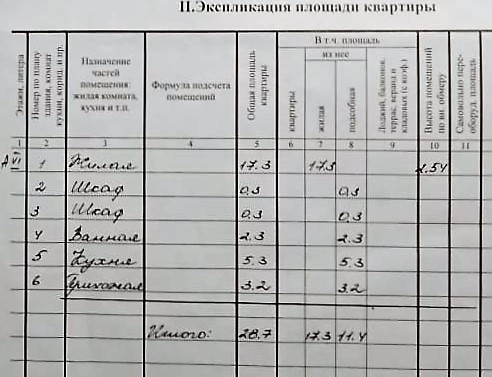 II.Экспликация площади квартиры
Этажи, литера
Номер по плану здания, комнат кухни, корид. и пр.
Назначение частей помещения: жилая комната, кухня и т.п.
Формула подсчета помещений
Общая площадь квартиры
В т.ч. площадь
из нее
квартиры
жилая
подсобная
Лоджий, балконов, террас, веранд и кладовых (с коэф.)
Высота помещений по вн. обмеру
Самовольно пере- оборуд. площадь
1 2 3 4 5 6 7 8 9 10 11
А VI 1 Жилая 17.3 17.3 2.54
2 Шкаф 0.3 0.3
3 Шкаф 0.3 0.3
4 Ванная 2.3 2.3
5 Кухня 5.3 5.3
6 Прихожая 3.2 3.2
Итого: 28.7 17.3 11.4